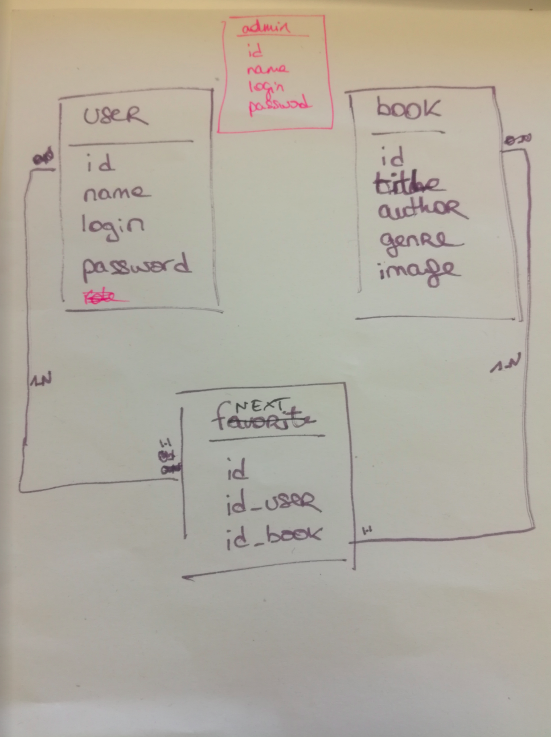 admin
id
name
login
password
user
id
name
login
password
book
id
title
author
genre
image
1-N
1-N
NEXT
favorite
id
id_user
id_book